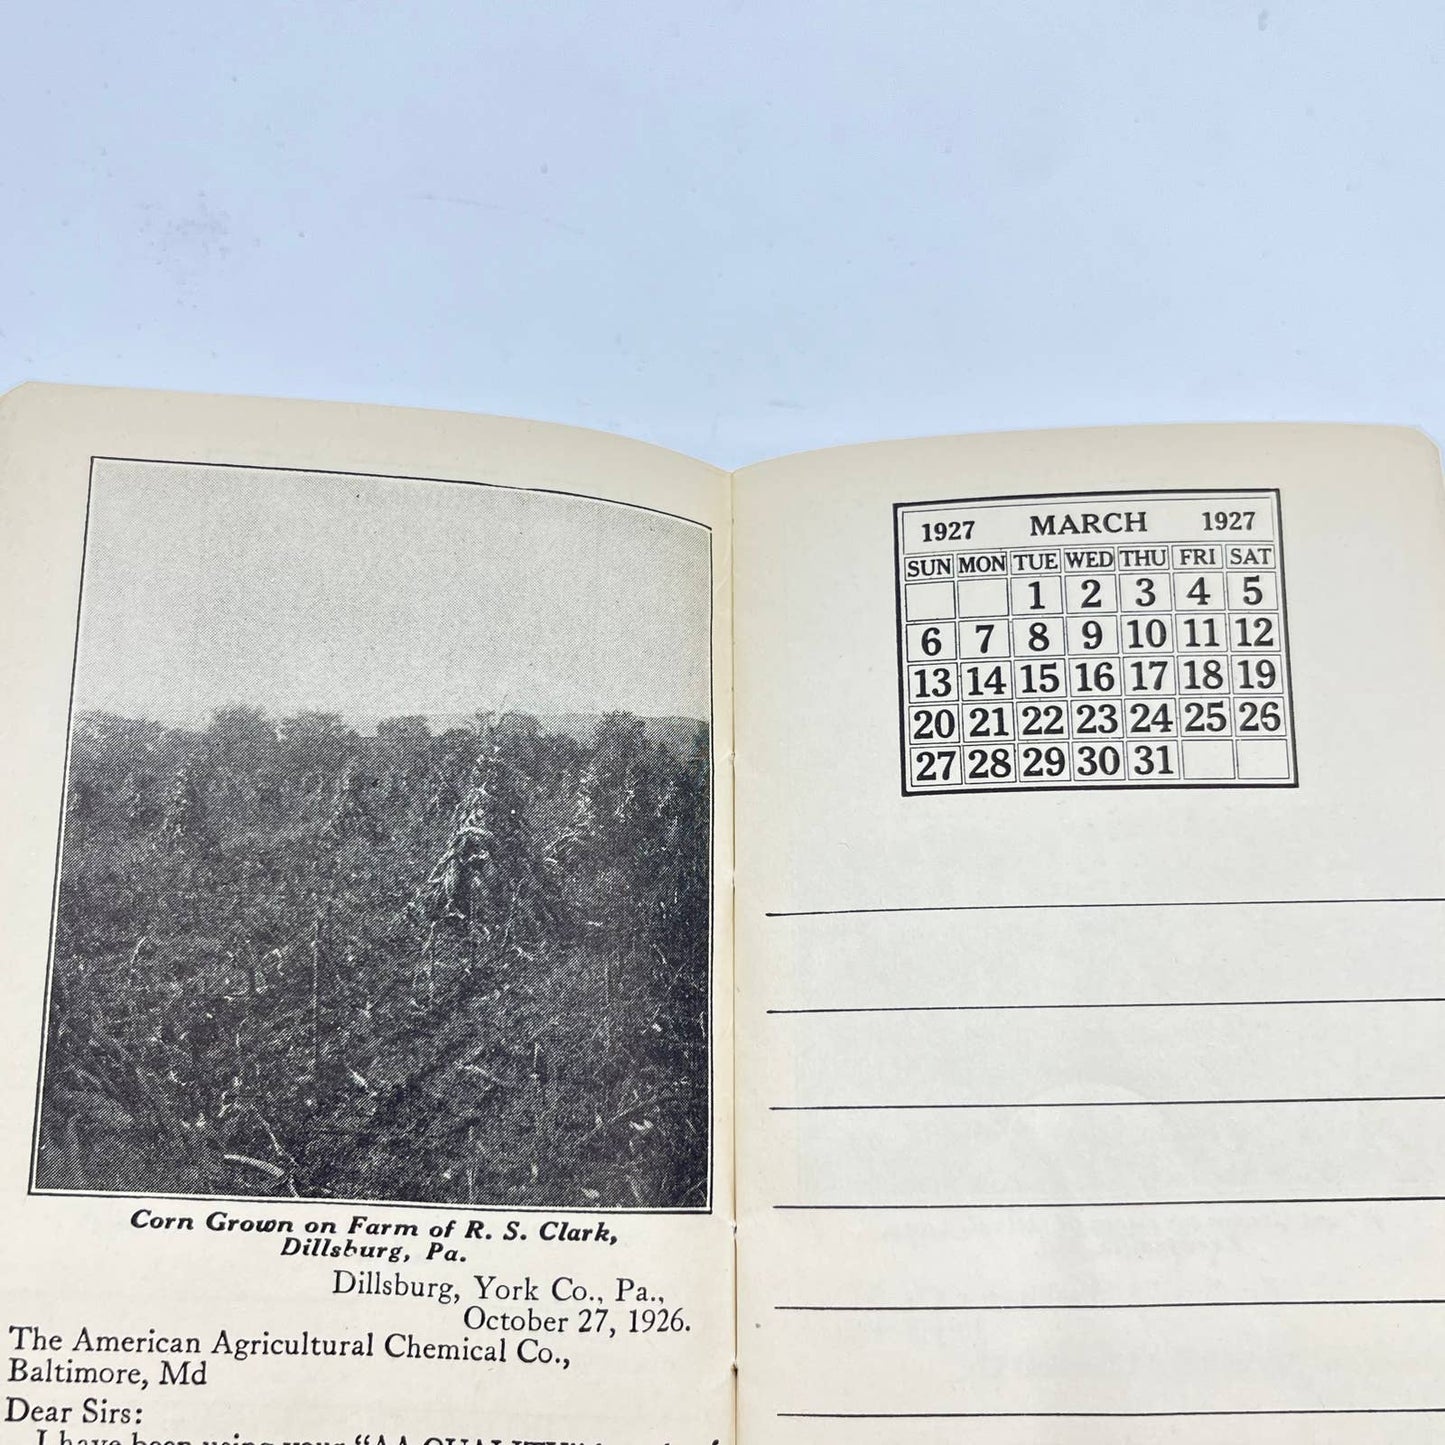 Corn Grown on Farm of R. S. Clark,
Dillsburg, Pa.
Dillsburg, York Co., Pa.,
October 27, 1926.
The American Agricultural Chemical Co.,
Baltimore, Md
Dear Sirs:
I have been using your "AA QUALITY"
1927 MARCH 1927
SUN MON TUE WED THU FRI SAT
1 2 3 4 5
6 7 8 9 10 11 12
13 14 15 16 17 18 19
20 21 22 23 24 25 26
27 28 29 30 31